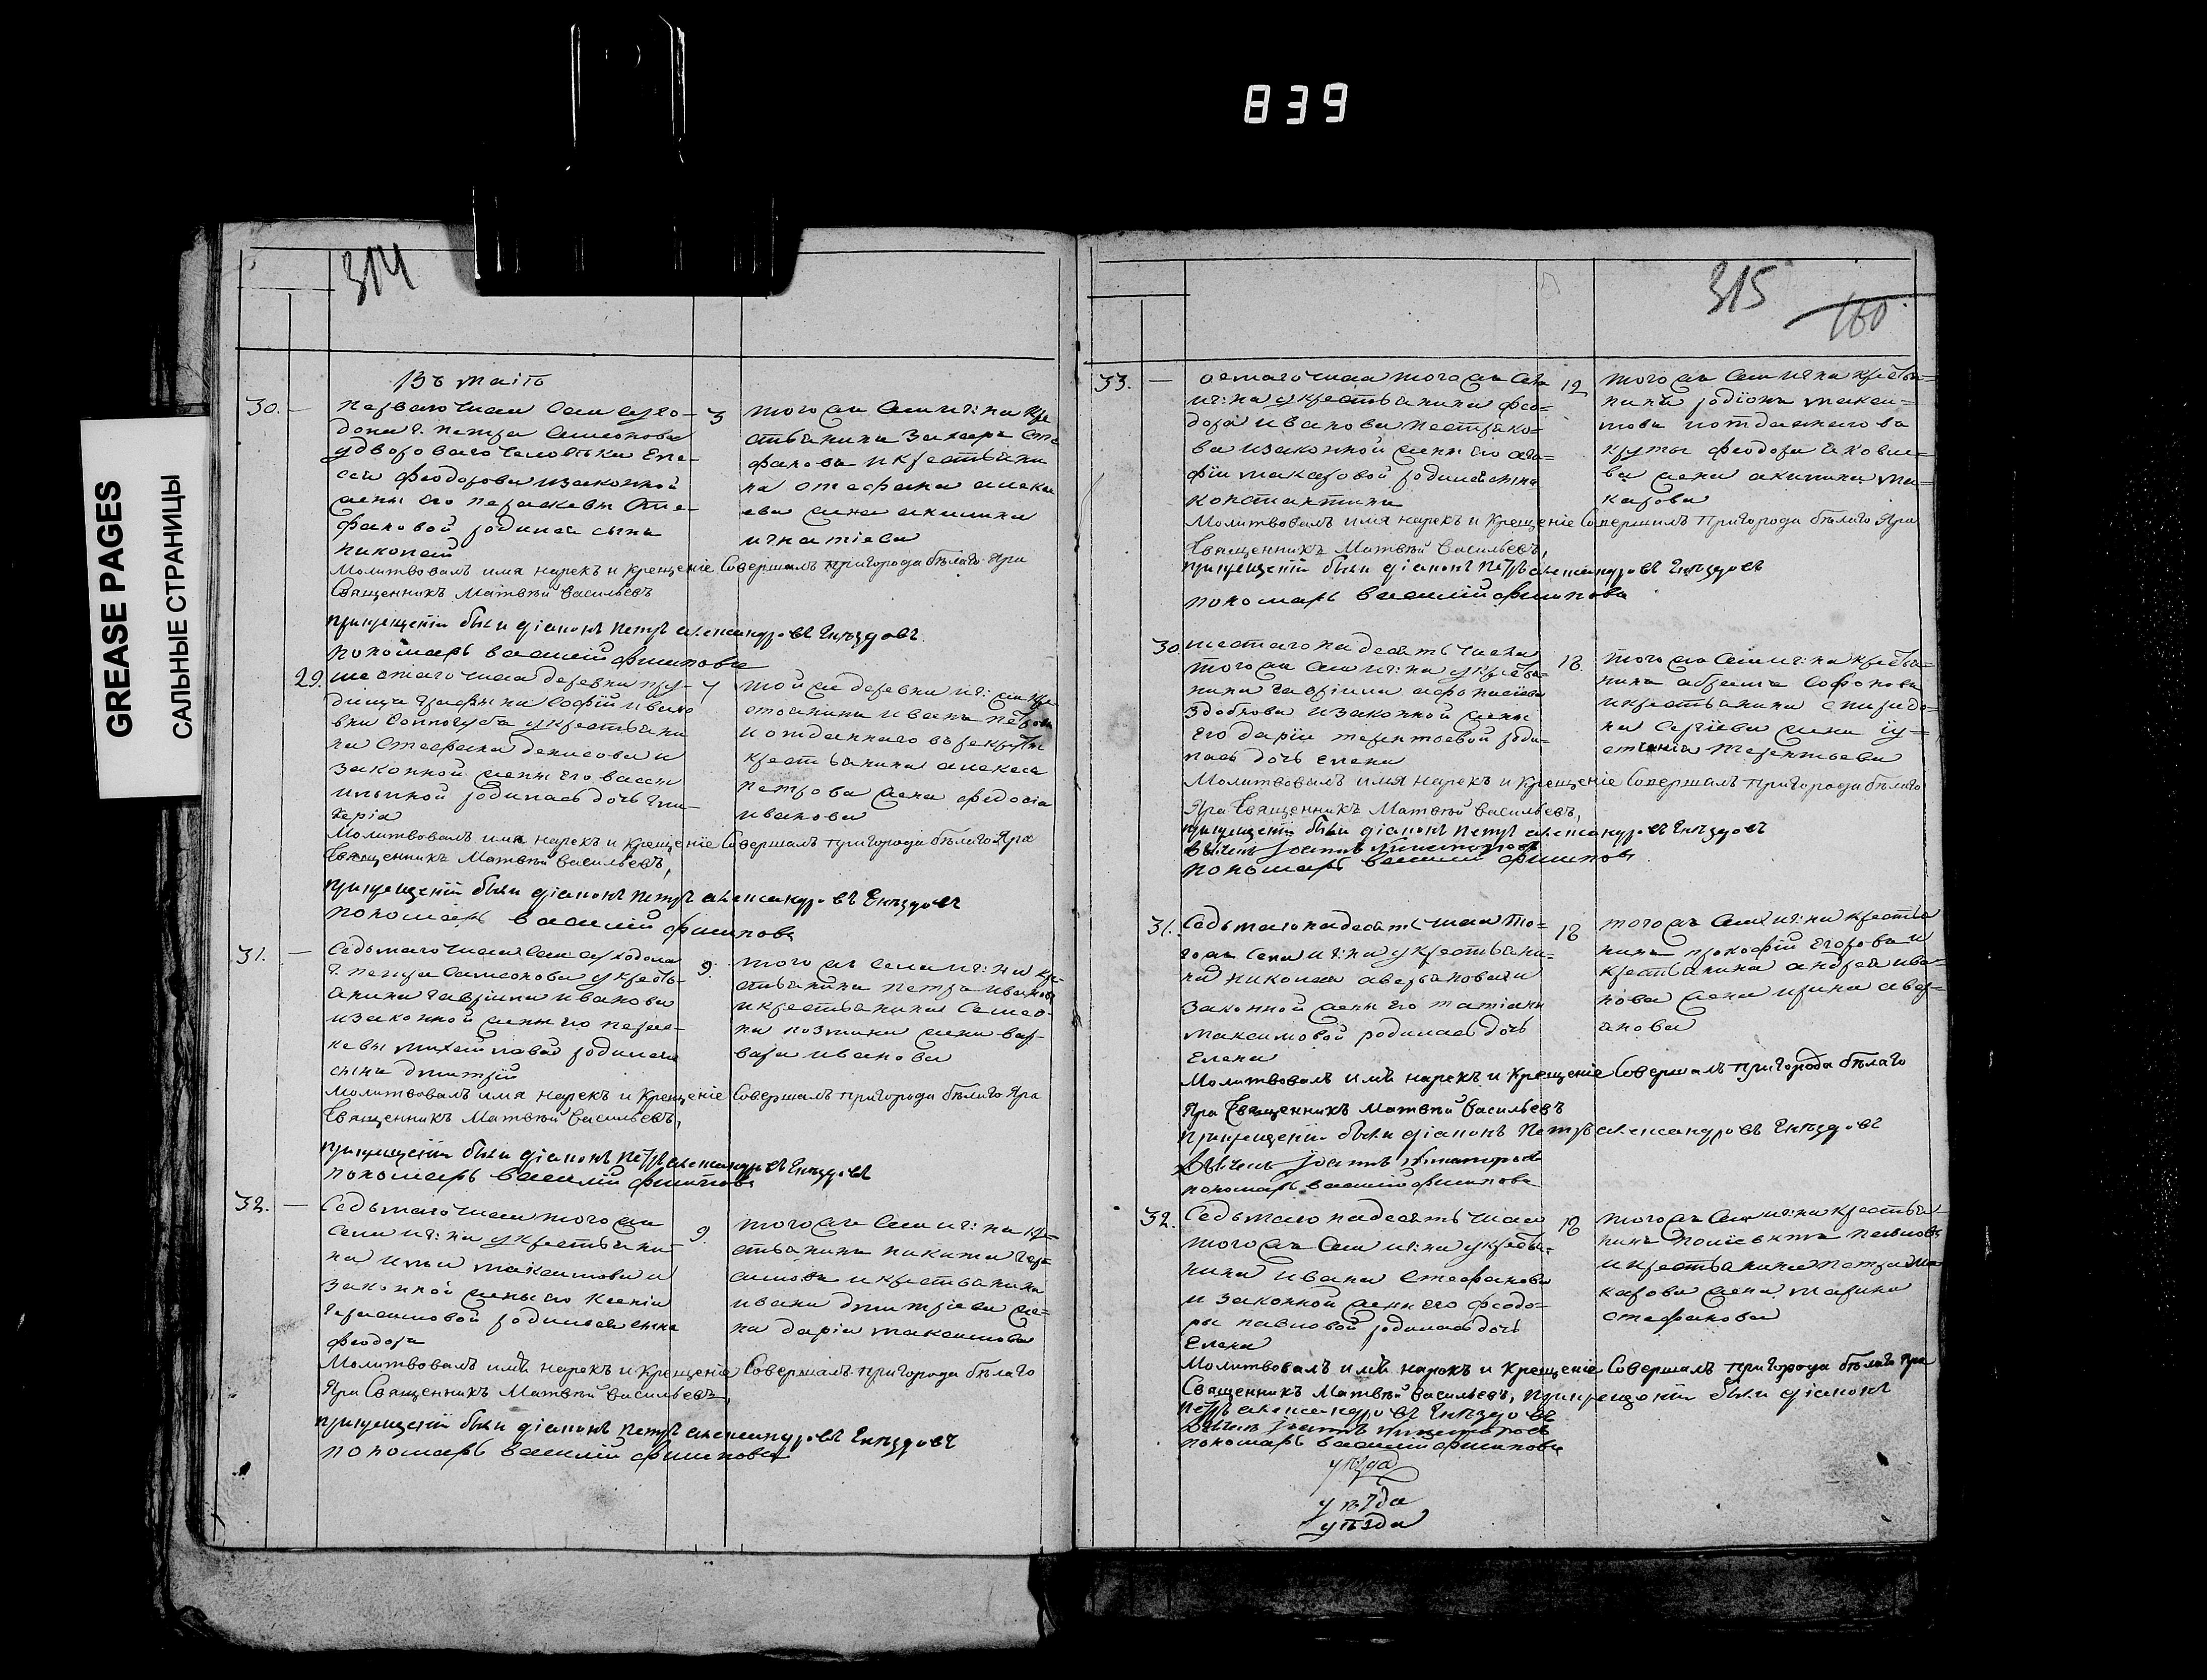 839
GREASE PAGES
САЛЬНЫЕ СТРАНИЦЫ
314
Въ маiѣ
30. —
перваго числа села сухо-
дона г. петра самсонова
у двороваго человѣка ели-
сея феодорова и законной
жены его параскевы Сте-
фановой родился сынъ
николай
3
того жъ села и г: на кре
стьянинъ захаръ Сте
фановъ и крестьяни
на стефана алексе
ева жена акилина
игнатiева
Молитвовалъ имя нарекъ и Крещенiе Совершалъ пригорода бѣлаго Яра
Священникъ Матвѣй Васильевъ
при крещенiи были дiаконъ петръ александровъ Гнѣздовъ
пономарь василiй филиповъ
29.
шестаго числа деревни пру-
дища графини софiи ивано
вны у крестьяни
на Стефана денисова и
законной жены его васы
ильиной родилась дочь гли-
керiа
7
той же деревни и г: же кре
стьянинъ иванъ петровъ
и отданнаго въ рекруты
крестьянина алексея
петрова жена федосiа
иванова
Молитвовалъ имя нарекъ и Крещенiе Совершалъ пригорода бѣлаго Яра
Священникъ Матвѣй Васильевъ,
при крещенiи были дiаконъ петръ александровъ Гнѣздовъ
пономарь василiй филиповъ
31. —
Седьмаго числа села суходона
г. петра самсонова у кресть-
янина гаврiила иванова
и законной жены его парас-
кевы михайловой родился
сынъ димитрiй
9.
того жъ села и г: на кре-
стьянинъ петръ ивановъ
и крестьянина Семео-
на козмина жена вар-
вара иванова
Молитвовалъ имя нарекъ и Крещенiе Совершалъ пригорода бѣлаго Яра
Священникъ Матвѣй Васильевъ,
при крещенiи были дiаконъ петръ александровъ Гнѣздовъ
пономарь василiй филиповъ
32. —
Седьмаго числа того жъ
села и г: на у крестьяни-
на ильи максимова и
законной жены его Ксенiи
герасимовой родился сынъ
феодоръ
9.
того жъ села и г: на кре-
стьянинъ никита гера-
симовъ и крестьянина
ивана дмитрiева же-
на дарiа максимова
Молитвовалъ имя нарекъ и Крещенiе Совершалъ пригорода бѣлаго
Яра Священникъ Матвѣй Васильевъ,
при крещенiи были дiаконъ петръ александровъ Гнѣздовъ
пономарь василiй филиповъ
315
160
33. —
осмаго числа того жъ села
и г: на у крестьянина фео-
дора иванова пестряко-
ва и законной жены его ага-
фiи макаровой родился сынъ
константинъ
12
того жъ села и г: на крестья-
нинъ родiонъ макси-
мовъ и отданнаго въ
круты феодора яковле-
ва жена акилина ма-
карова
Молитвовалъ имя нарекъ и Крещенiе Совершалъ Пригорода бѣлаго Яра
Священникъ Матвѣй Васильевъ,
при крещенiи были дiаконъ петръ александровъ Гнѣздовъ
пономарь василiй филиповъ
30
шестагонадесять числа
того жъ села и г: на у крестья-
нина гаврiила афонасiева
здобнова и законной жены
его дарiи терентьевой роди-
лась дочь елена
18
того жъ села и г: на крестья-
нинъ абрамъ Софоновъ
и крестьянина спиридо-
на сергiева жена iу-
стинiа терентьева
Молитвовалъ имя нарекъ и Крещенiе Совершалъ Пригорода бѣлаго
Яра Священникъ Матвѣй Васильевъ,
при крещенiи были дiаконъ петръ александровъ Гнѣздовъ
пономарь василiй филиповъ
31.
Седьмагонадесять числа то-
го жъ села и г: на у крестьяни-
на николая аверьянова и
законной жены его татiаны
максимовой родилась дочь
Елена
18
того жъ села и г: на крестья
нинъ прокофiй егоровъ и
крестьянина андрея ива-
нова жена ирина авер-
янова
Молитвовалъ имя нарекъ и Крещенiе Совершалъ пригорода бѣлаго
Яра Священникъ Матвѣй Васильевъ
при крещенiи были дiаконъ Петръ александровъ Гнѣздовъ
пономарь василiй филиповъ
32.
Седьмагонадесять числа
того жъ села и г: на у крестья-
нина ивана Стефанова
и законной жены его феодо-
ры павловой родилась дочь
Елена
18
того жъ села и г: на крестья-
нинъ павловъ
и крестьянина петра ма
карова жена марина
стефанова
Молитвовалъ имя нарекъ и Крещенiе Совершалъ пригорода бѣлаго Яра
Священникъ Матвѣй Васильевъ, При крещенiи были дiаконъ
петръ александровъ Гнѣздовъ
пономарь василiй филиповъ
уѣзда
уѣзда
уѣзда